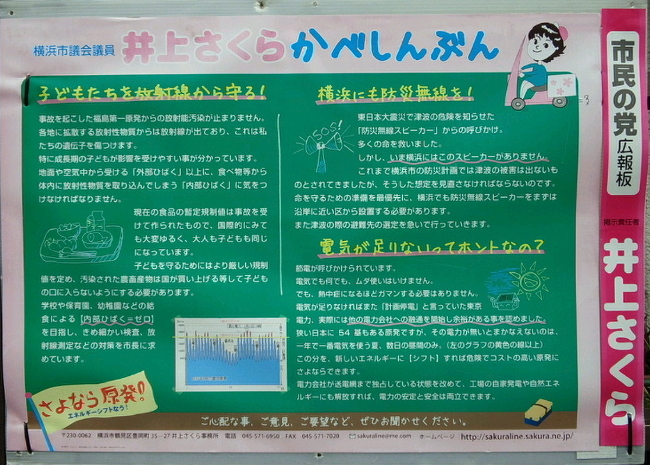 横浜市議会議員 井上さくら かべしんぶん
子どもたちを放射線から守る!
事故を起こした福島第一原発からの放射能汚染が止まりません。
各地に拡散する放射性物質からは放射線が出ており、これは私
たちの遺伝子を傷つけます。
特に成長期の子どもが影響を受けやすい事が分かっています。
地面や空気中から受ける「外部ひばく」以上に、食べ物等から
体内に放射性物質を取り込んでしまう「内部ひばく」に気をつ
けなければなりません。
現在の食品の暫定規制値は事故を受
けて作られたもので、国際的にみて
も大変ゆるく、大人も子どもも同じ
になっています。
子どもを守るためにはより厳しい規制
値を定め、汚染された農畜産物は国が買い上げる等して子ども
の口に入らないようにする必要があります。
学校や保育園、幼稚園などの給
食による「内部ひばく=ゼロ」
を目指し、きめ細かい検査、放
射線測定などの対策を市長に求
めています。
さよなら原発!
エネルギーシフトなう!
横浜にも防災無線を!
SOS!
東日本大震災で津波の危険を知らせた
「防災無線スピーカー」からの呼びかけ。
多くの命を救いました。
しかし、いま横浜にはこのスピーカーがありません。
これまで横浜市の防災計画では津波の被害は出ないも
のとされてきましたが、そうした想定を見直さなければならないのです。
命を守るための準備を最優先に、横浜でも防災無線スピーカーをまずは
沿岸に近い区から設置する必要があります。
また津波の際の避難先の選定を急いで行っていきます。
電気が足りないってホントなの?
節電が呼びかけられています。
電気でも何でも、ムダ使いはいけません。
でも、熱中症になるほどガマンする必要はありません。
電気が足りなければまた「計画停電」と言っていた東京
電力、実際には他の電力会社への融通を開始し余裕がある事を認めました。
狭い日本に 54 基もある原発ですが、その電力が無いとまかなえないのは、
一年で一番電気を使う夏、数日の昼間のみ。(左のグラフの黄色の線以上)
この分を、新しいエネルギーに【シフト】すれば危険でコストの高い原発に
さよならできます。
電力会社が送電網まで独占している状態を改めて、工場の自家発電や自然エネ
ルギーにも解放すれば、電力の安定と安全は両立できます。
ご心配な事、ご意見、ご要望など、ぜひお聞かせください。
〒230-0062 横浜市鶴見区豊岡町 35-27 井上さくら事務所 電話 045-571-6950 FAX 045-571-7020 sakuraline@me.com ホームページ http://sakuraline.sakura.ne.jp/
市民の党 広報板
掲示責任者
井上さくら